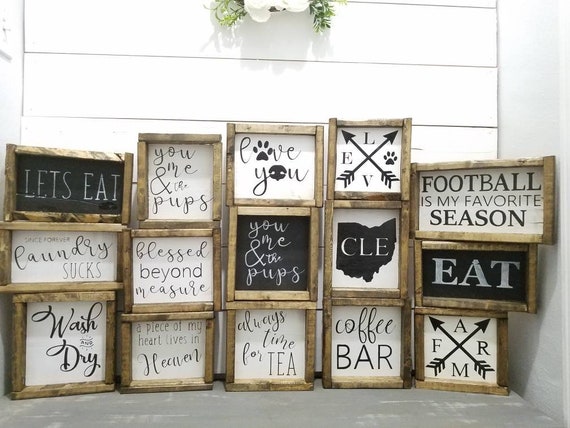 LETS EAT
SINCE FOREVER
laundry
SUCKS
Wash
AND
Dry
you
me
& the
pups
blessed
beyond
measure
a piece of my
heart lives in
Heaven
love
you
you
me
& the
pups
always
time
for TEA
L
E V
CLE
coffee
BAR
FOOTBALL
IS MY FAVORITE
SEASON
EAT
A
F R
M